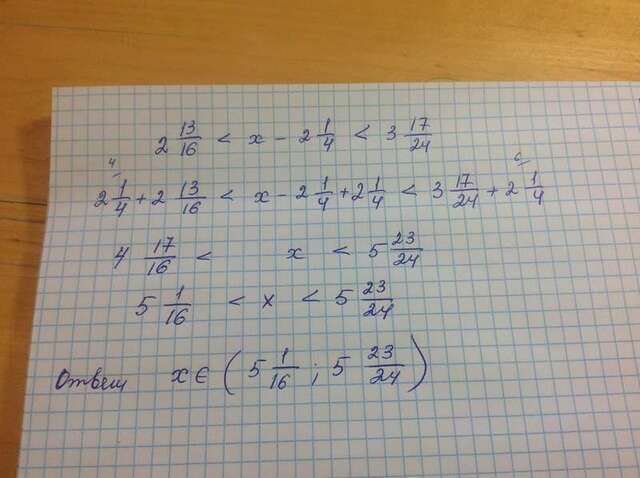 2 13/16 < x - 2 1/4 < 3 17/24
4 6
2 1/4 + 2 13/16 < x - 2 1/4 + 2 1/4 < 3 17/24 + 2 1/4
4 17/16 < x < 5 23/24
5 1/16 < x < 5 23/24
Ответ x ∈ (5 1/16 ; 5 23/24)